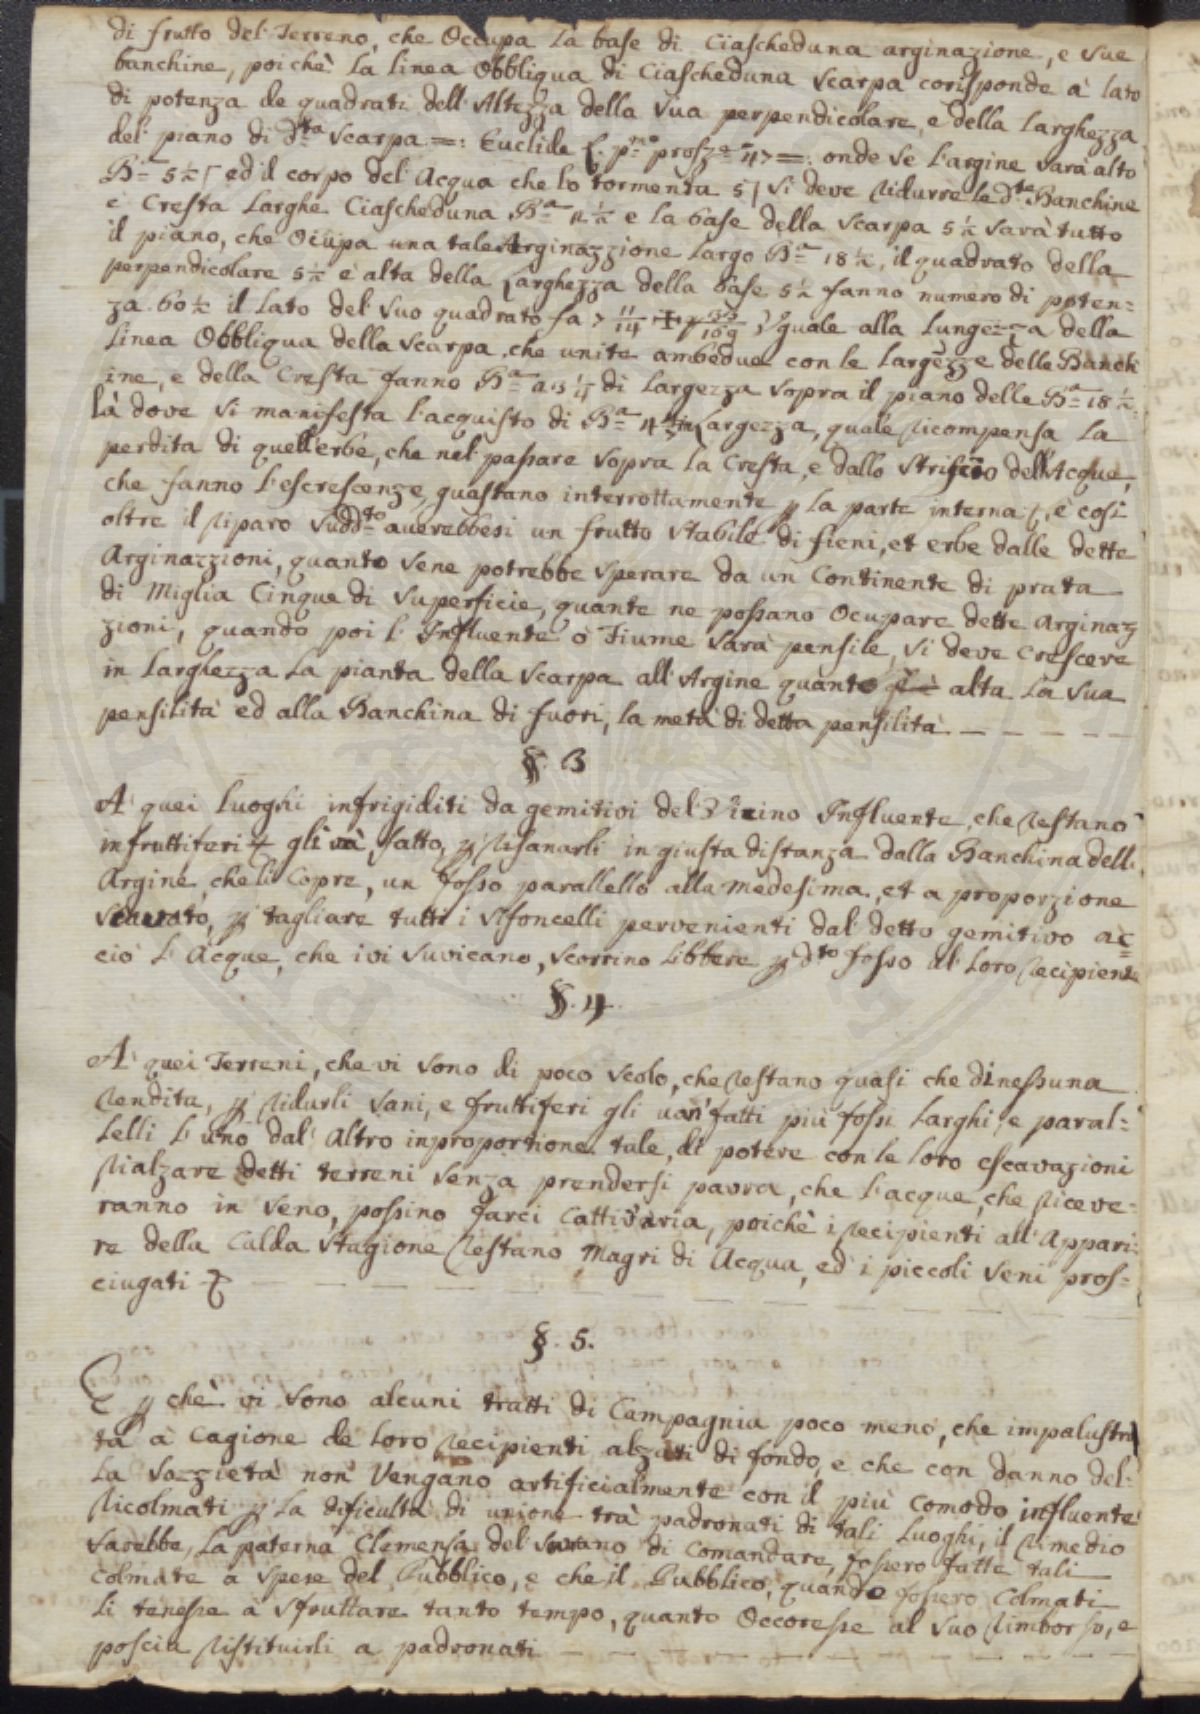 di frutto del Terreno, che Occupa la base di Ciascheduna arginazione, e sue
banchine, poichè la linea Obbliqua di Ciascheduna scarpa corisponde à lato
di potenza de quadrati dell'Altezza della sua perpendicolare, e della larghezza
del piano di d.ta scarpa =: Euclide p.mo 47 =: onde se l'argine sarà alto
B.a 5½ ed il corpo del Acqua che lo tormenta 5 si deve ridurre le d.te Banchine
e Cresta larghe Ciascheduna B.a 2½ e la base della scarpa 5½ sarà tutto
il piano, che Ocupa una tale Arginazzione largo B.a 18½, il quadrato della
perpendicolare 5½ e alta della Larghezza della base 5½ fanno numero di poten=
za 60½ il lato del suo quadrato fa 7 11/14 uguale alla lungezza della
linea Obbliqua della scarpa, che unite ambedue con le largezze delle Banch
ine, e della Cresta fanno B.a di largezza sopra il piano delle B.a 18½
là dove si manifesta l'acquisto di B.a 4 in Largezza, quale ricompensa la
perdita di quell'erbe, che nel passare sopra la Cresta, e dallo striscio dell'Acque,
che fanno l'escrescenze, guastano interrottamente p la parte interna, e così
oltre il riparo sudd.to averebbesi un frutto stabile di fieni, et erbe dalle dette
Arginazzioni, quanto sene potrebbe sperare da un Continente di prata
di Miglia Cinque di superficie, quante ne possano Ocupare dette arginaz
zioni, quando poi l'Influente o Fiume sarà pensile, si deve crescere
in larghezza la pianta della scarpa all'Argine quanto alta la sua
pensilità ed alla Banchina di fuori, la metà di detta pensilità
§. 3
A' quei luoghi infrigiditi da gemitivi del Vicino Influente, che restano
infruttiferi gli và fatto, p risanarli in giusta distanza dalla Banchina dell'
Argine, che li Copre, un fosso parallello alla medesima, et a proporzione
scavato, p tagliare tutti i sifoncelli pervenienti dal detto gemitivo ac=
ciò l'Acque, che ivi suvicano, scorrino libbere p d.to fosso al loro recipiente
§. 4.
A' quei Terreni, che vi sono di poco scolo, che restano quasi che di nessuna
rendita, p ridurli sani, e fruttiferi gli van' fatti più fossi larghi, e paral=
lelli l'uno dal' Altro in proportione tale, di potere con le loro escavazioni
rialzare detti terreni senza prendersi paura, che l'acque, che riceve=
ranno in seno, possino farci Cattiv'aria, poichè i recipienti all'Appari=
re della Calda Stagione restano Magri di Acqua, ed i piccoli seni pros=
ciugati
§. 5.
E p chè vi sono alcuni tratti di Campagnia poco meno, che impalustri
ta a cagione de loro recipienti alzati di fondo, e che con danno del=
la sozzietà non Vengano artificialmente con il più comodo influente
ricolmati p la dificultà di unione trà padronati di tali Luoghi, il rimedio
sarebbe, la paterna Clemensa del Sovrano di Comandare, fossero fatte tali
colmate a spese del Pubblico, e che il Pubblico, quando fossero Colmati
li tenesse a sfruttare tanto tempo, quanto Occoresse al suo rimborso, e
poscia ristituirli a padronati